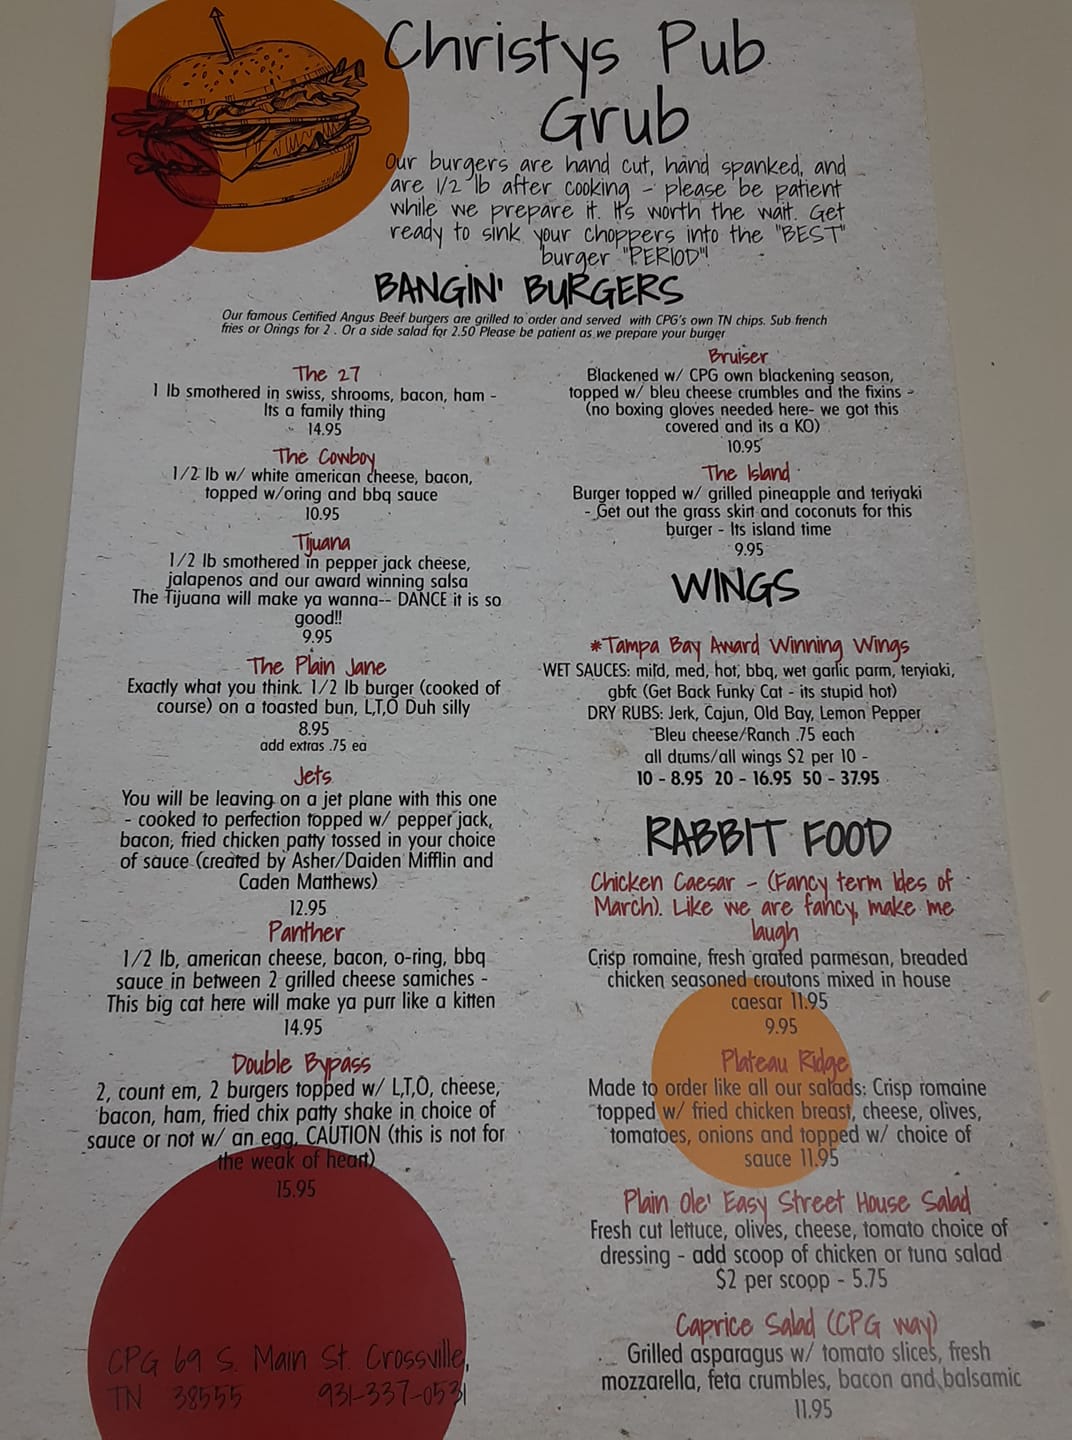 Christys Pub
Grub
Our burgers are hand cut, hand spanked, and
are 1/2 lb after cooking - please be patient
while we prepare it. It's worth the wait. Get
ready to sink your choppers into the "BEST"
burger "PERIOD"!
BANGIN' BURGERS
Our famous Certified Angus Beef burgers are grilled to order and served with CPG's own TN chips. Sub french
fries or Orings for 2 . Or a side salad for 2.50 Please be patient as we prepare your burger
The 27
1 lb smothered in swiss, shrooms, bacon, ham -
Its a family thing
14.95
The Cowboy
1/2 lb w/ white american cheese, bacon,
topped w/oring and bbq sauce
10.95
Tijuana
1/2 lb smothered in pepper jack cheese,
jalapenos and our award winning salsa
The Tijuana will make ya wanna-- DANCE it is so
good!!
9.95
The Plain Jane
Exactly what you think. 1/2 lb burger (cooked of
course) on a toasted bun, L,T,O Duh silly
8.95
add extras .75 ea
Jets
You will be leaving on a jet plane with this one
- cooked to perfection topped w/ pepper jack,
bacon, fried chicken patty tossed in your choice
of sauce (created by Asher/Daiden Mifflin and
Caden Matthews)
12.95
Panther
1/2 lb, american cheese, bacon, o-ring, bbq
sauce in between 2 grilled cheese samiches -
This big cat here will make ya purr like a kitten
14.95
Double Bypass
2, count em, 2 burgers topped w/ L,T,O, cheese,
bacon, ham, fried chix patty shake in choice of
sauce or not w/ an egg, CAUTION (this is not for
the weak of heart)
15.95
CPG 69 S. Main St. Crossville,
TN 38555 931-337-0531
Bruiser
Blackened w/ CPG own blackening season,
topped w/ bleu cheese crumbles and the fixins -
(no boxing gloves needed here- we got this
covered and its a KO)
10.95
The Island
Burger topped w/ grilled pineapple and teriyaki
- Get out the grass skirt and coconuts for this
burger - Its island time
9.95
WINGS
*Tampa Bay Award Winning Wings
WET SAUCES: mild, med, hot, bbq, wet garlic parm, teryiaki,
gbfc (Get Back Funky Cat - its stupid hot)
DRY RUBS: Jerk, Cajun, Old Bay, Lemon Pepper
Bleu cheese/Ranch .75 each
all drums/all wings $2 per 10 -
10 - 8.95 20 - 16.95 50 - 37.95
RABBIT FOOD
Chicken Caesar - (Fancy term Ides of
March). Like we are fancy, make me
laugh
Crisp romaine, fresh grated parmesan, breaded
chicken seasoned croutons mixed in house
caesar 11.95
9.95
Plateau Ridge
Made to order like all our salads: Crisp romaine
topped w/ fried chicken breast, cheese, olives,
tomatoes, onions and topped w/ choice of
sauce 11.95
Plain Ole' Easy Street House Salad
Fresh cut lettuce, olives, cheese, tomato choice of
dressing - add scoop of chicken or tuna salad
$2 per scoop - 5.75
Caprice Salad (CPG way)
Grilled asparagus w/ tomato slices, fresh
mozzarella, feta crumbles, bacon and balsamic
11.95